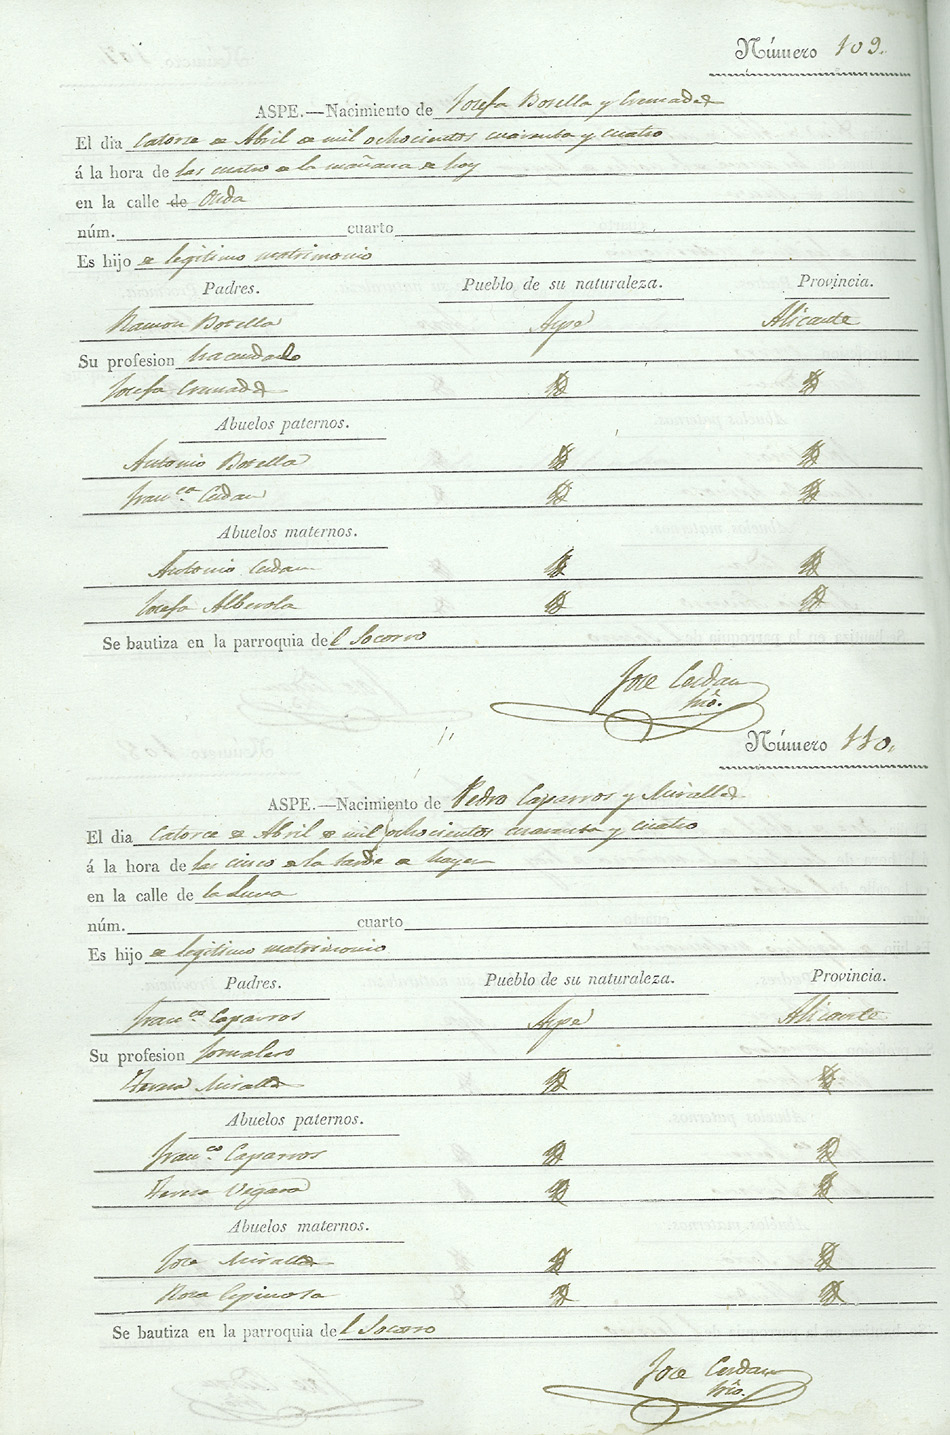 Número 109.
ASPE.—Nacimiento de Josefa Botella y Cremades
El dia Catorce de Abril de mil ochocientos cuarenta y cuatro
á la hora de las cuatro de la mañana de hoy
en la calle de Orida
núm. cuarto
Es hijo de legitimo matrimonio
Padres. Pueblo de su naturaleza. Provincia.
Ramon Botella Aspe Alicante
Su profesion hacendado
Josefa Cremades
Abuelos paternos.
Antonio Botella
Fran.ca Cerdan
Abuelos maternos.
Antonio
Josefa Alberola
Se bautiza en la parroquia del Socorro
Jose Cerdan
Número 110.
ASPE.—Nacimiento de Pedro Caparros y Miralles
El dia Catorce de Abril de mil ochocientos cuarenta y cuatro
á la hora de las cinco de la tarde de hayer
en la calle de la
núm. cuarto
Es hijo de legitimo matrimonio
Padres. Pueblo de su naturaleza. Provincia.
Fran.co Caparros Aspe Alicante
Su profesion Jornalero
Teresa Miralles
Abuelos paternos.
Fran.co Caparros
Teresa Vegara
Abuelos maternos.
Jose Miralles
Rosa Espinosa
Se bautiza en la parroquia del Socorro
Jose Cerdan